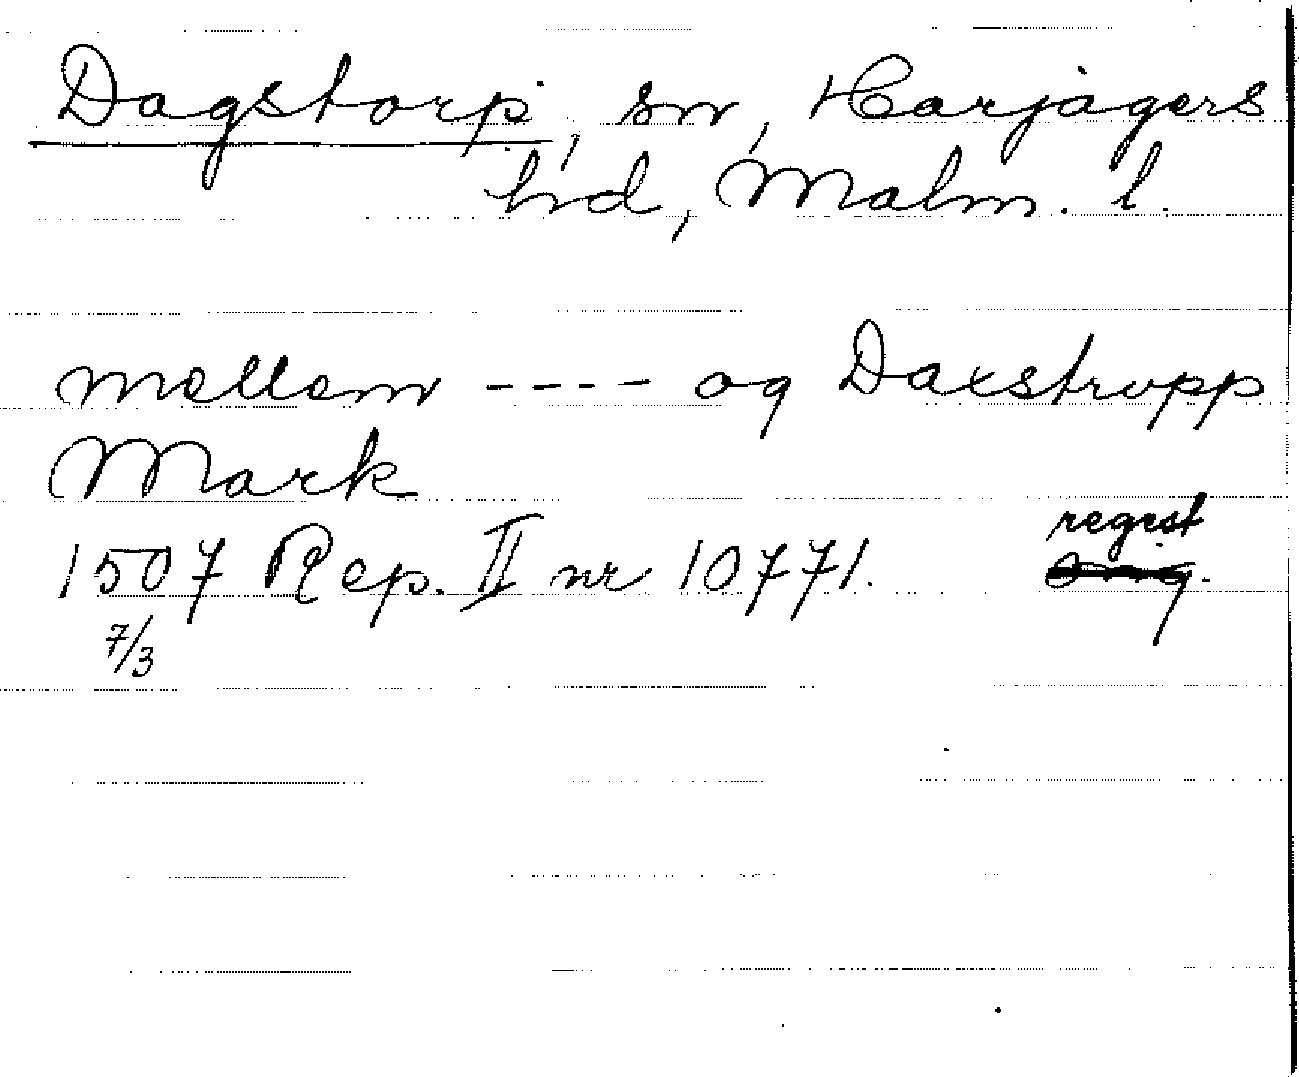 Dagstorp, sn, Harjagers
hd, Malm. l.
mellem ---- og Daxstrupp
Mark
regist
1507 Rep. II nr 10771.
7/3